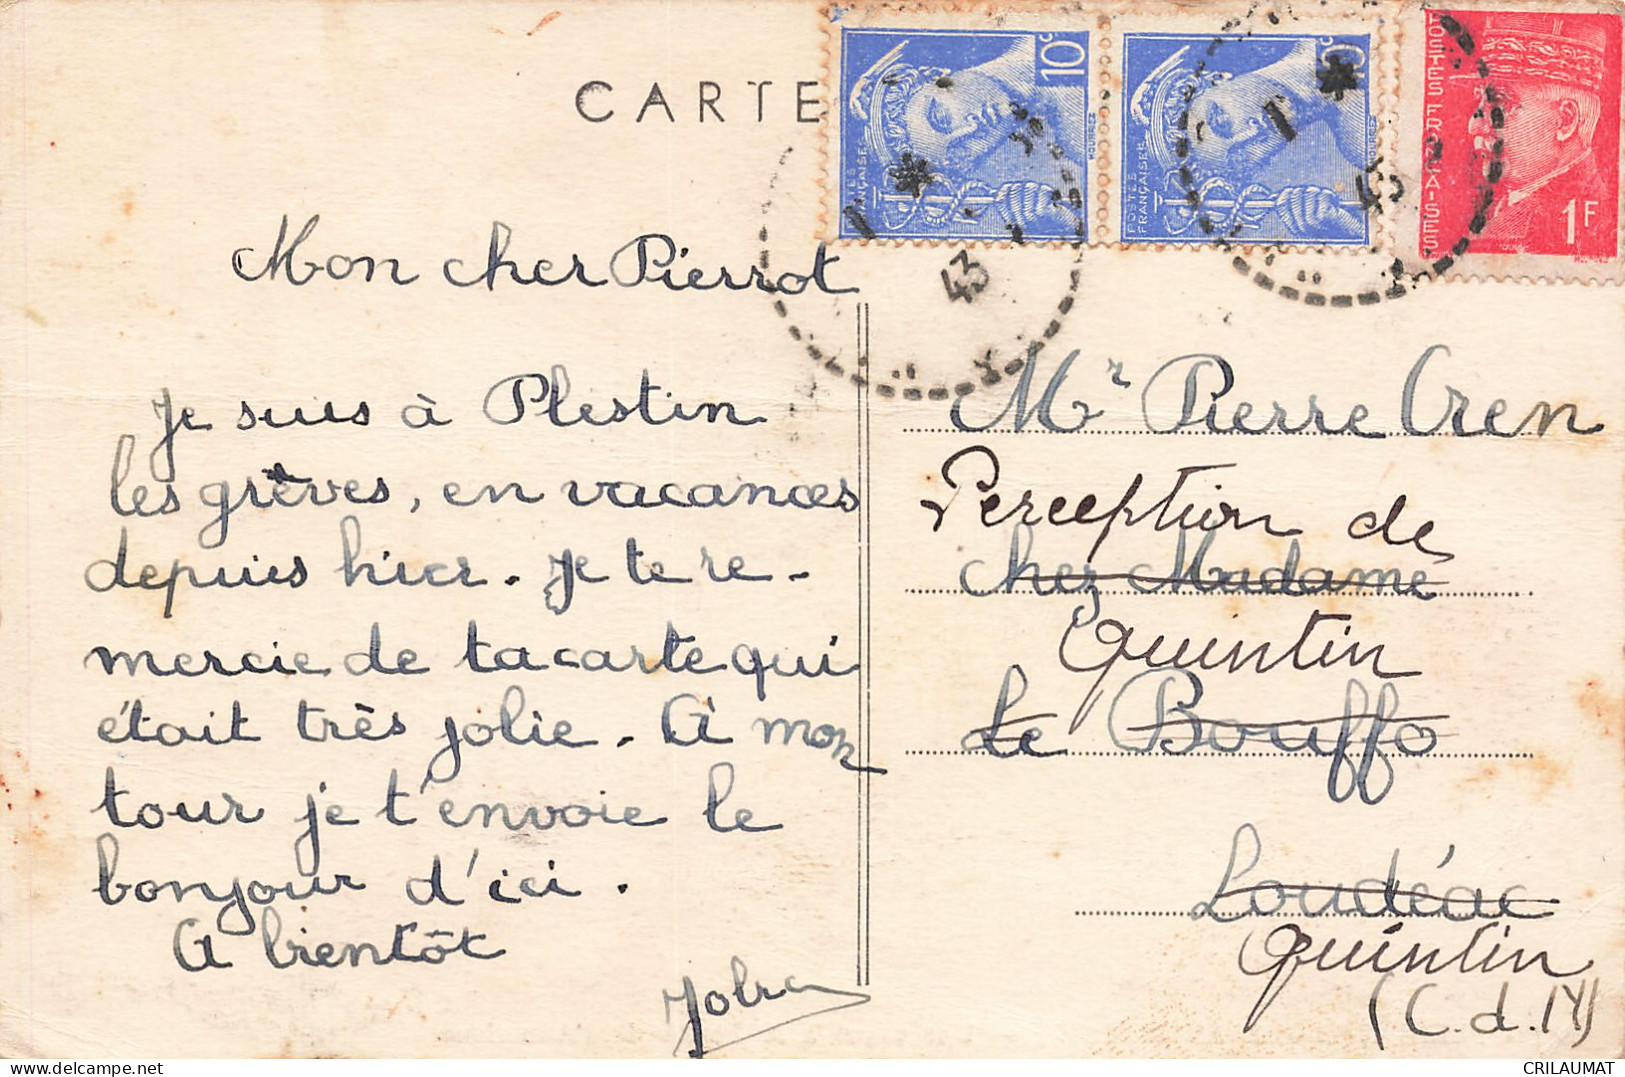 CARTE
10c
POSTES FRANÇAISES
MOURIEZ
10c
POSTES FRANÇAISES
MOURIEZ
POSTES FRANÇAISES
1F
43
43
Mon cher Pierrot
Je suis à Plestin
les grèves, en vacances
depuis hier. Je te re-
mercie de ta carte qui
était très jolie. A mon
tour je t'envoie le
bonjour d'ici.
A bientôt
Mr Pierre Oren
Perception de
chez Madame
Quintin
Le Bouffo
Loudéac
Quintin
(C.d.N)
CRILAUMAT